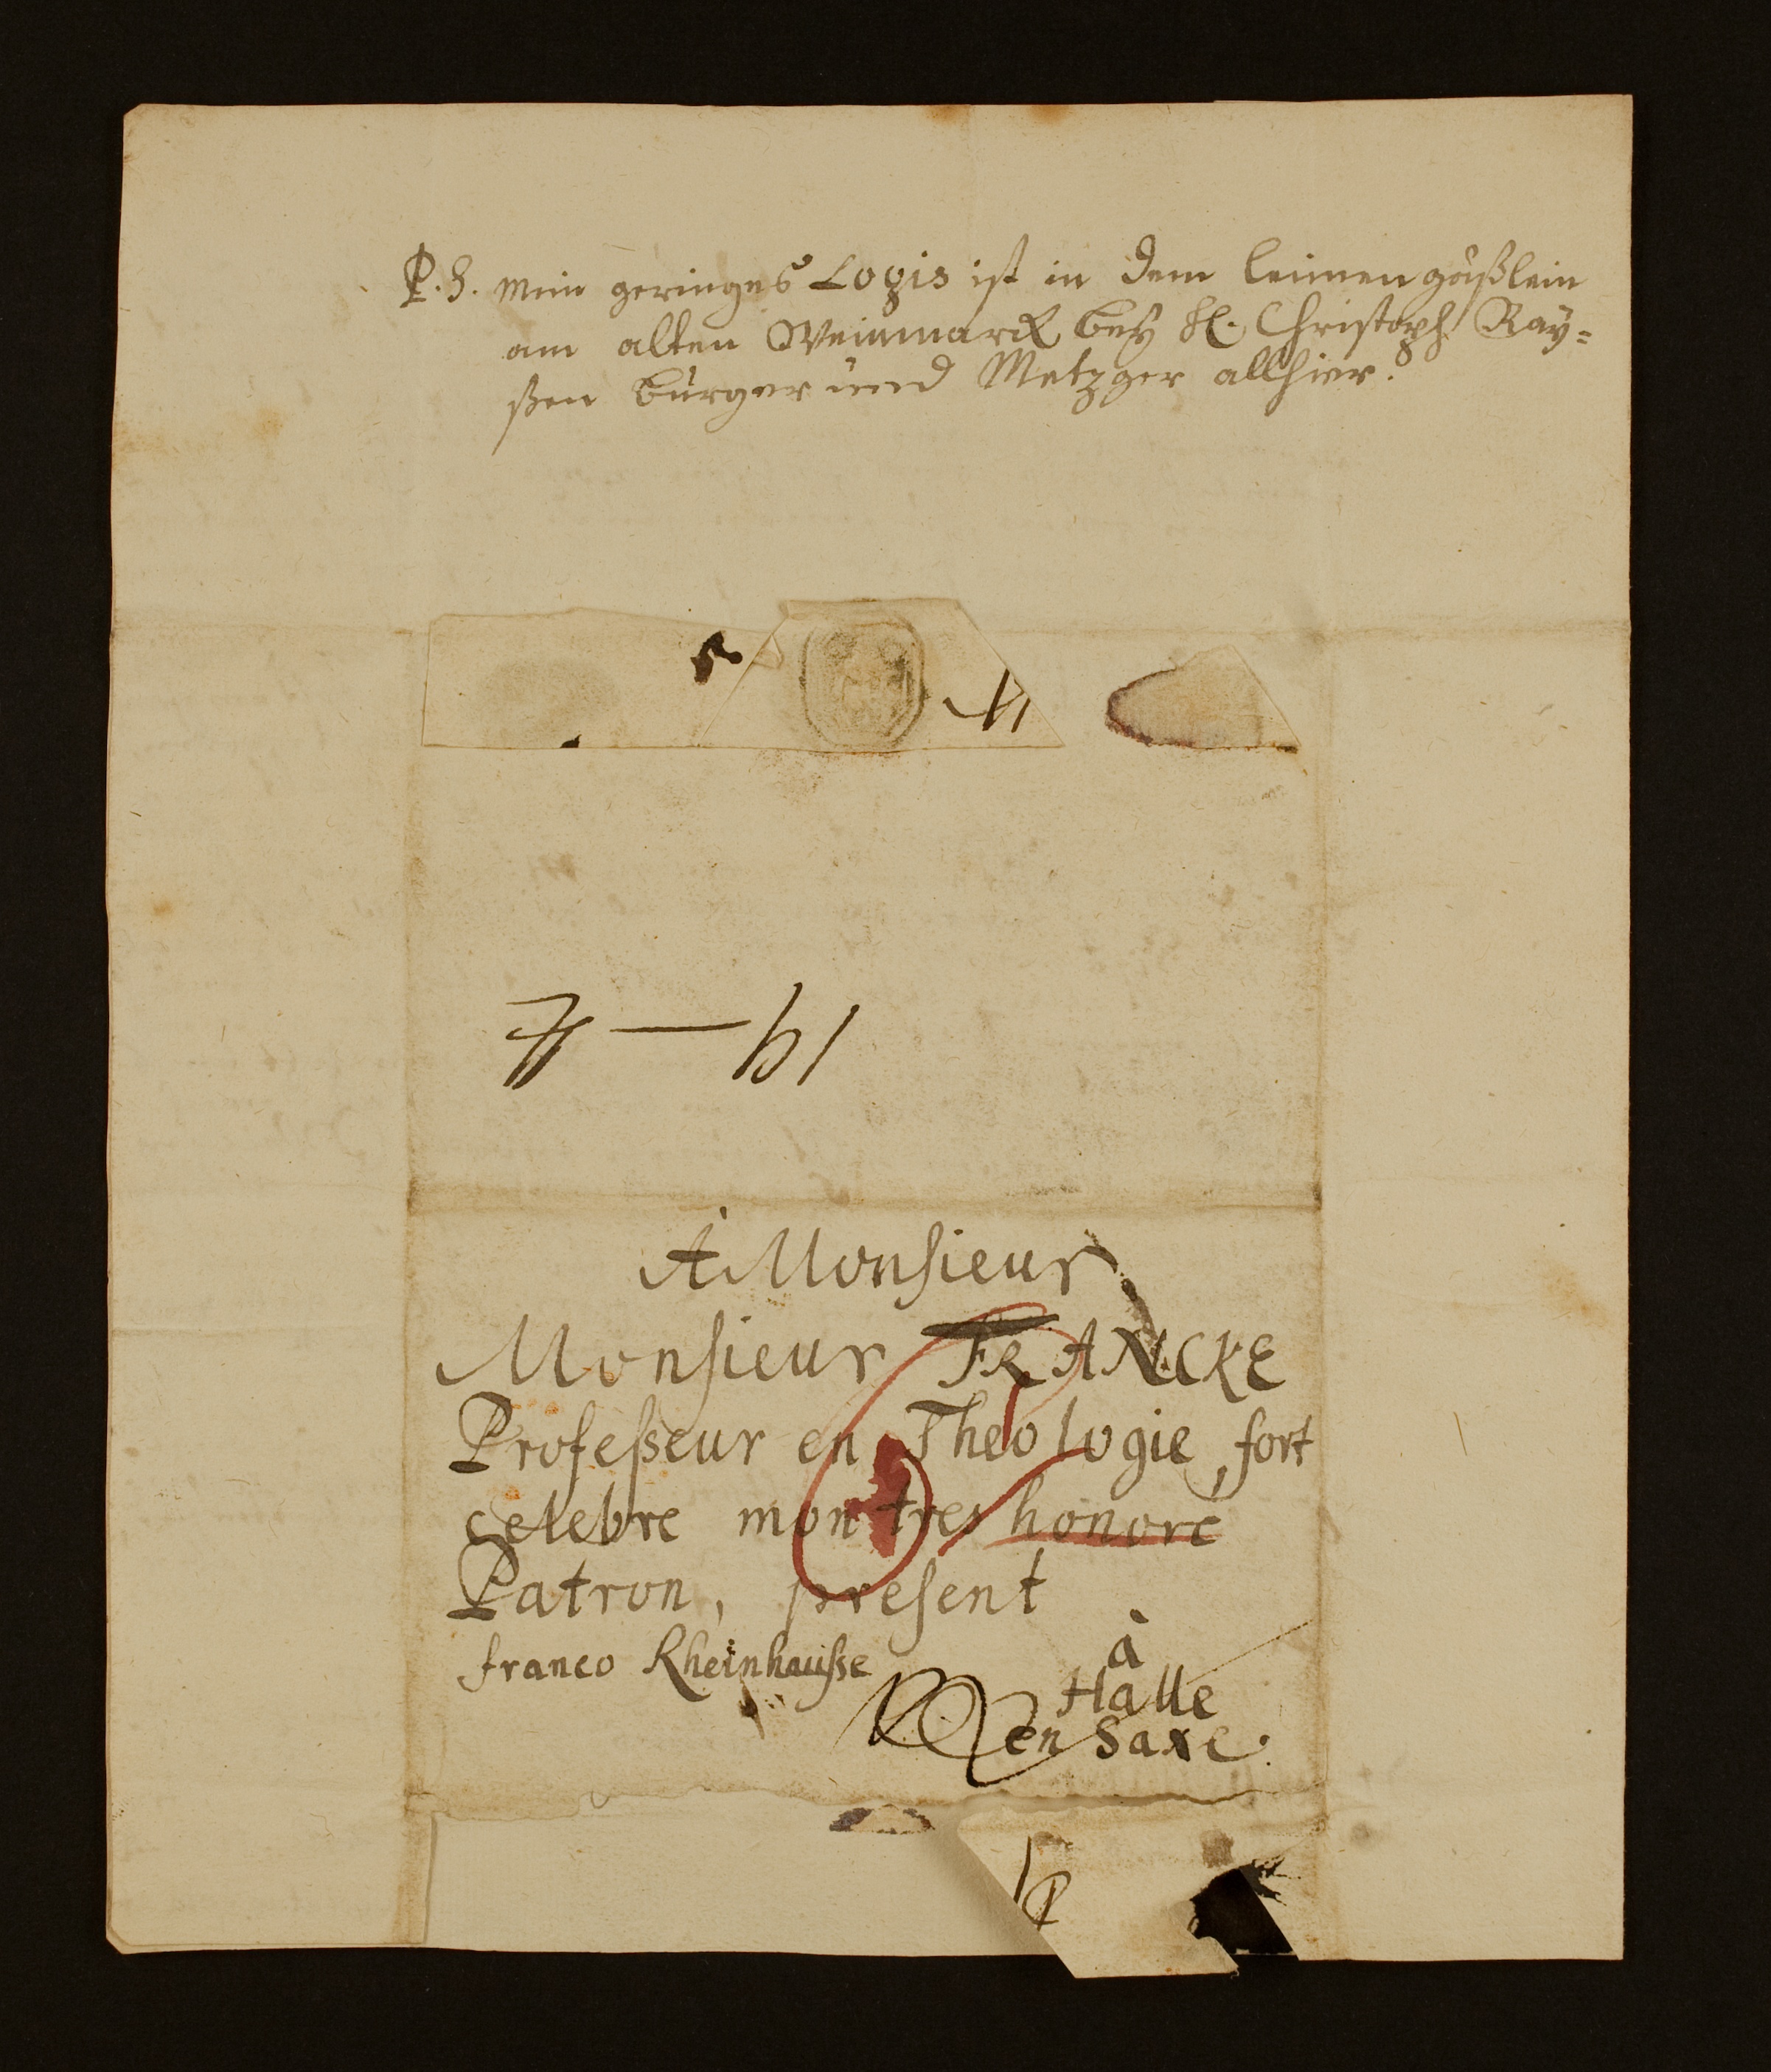 P.S. Mein geringes Logis ist in dem leimengäßlein
am alten Weinmarck bey H. Christoph Ray-
ßen burger und Metzger allhier.
A Monsieur
Monsieur FRANCKE
Professeur en Theologie, fort
celebre mon tres honoré
Patron, present
franco Rheinhausse
à
Halle
en Saxe.